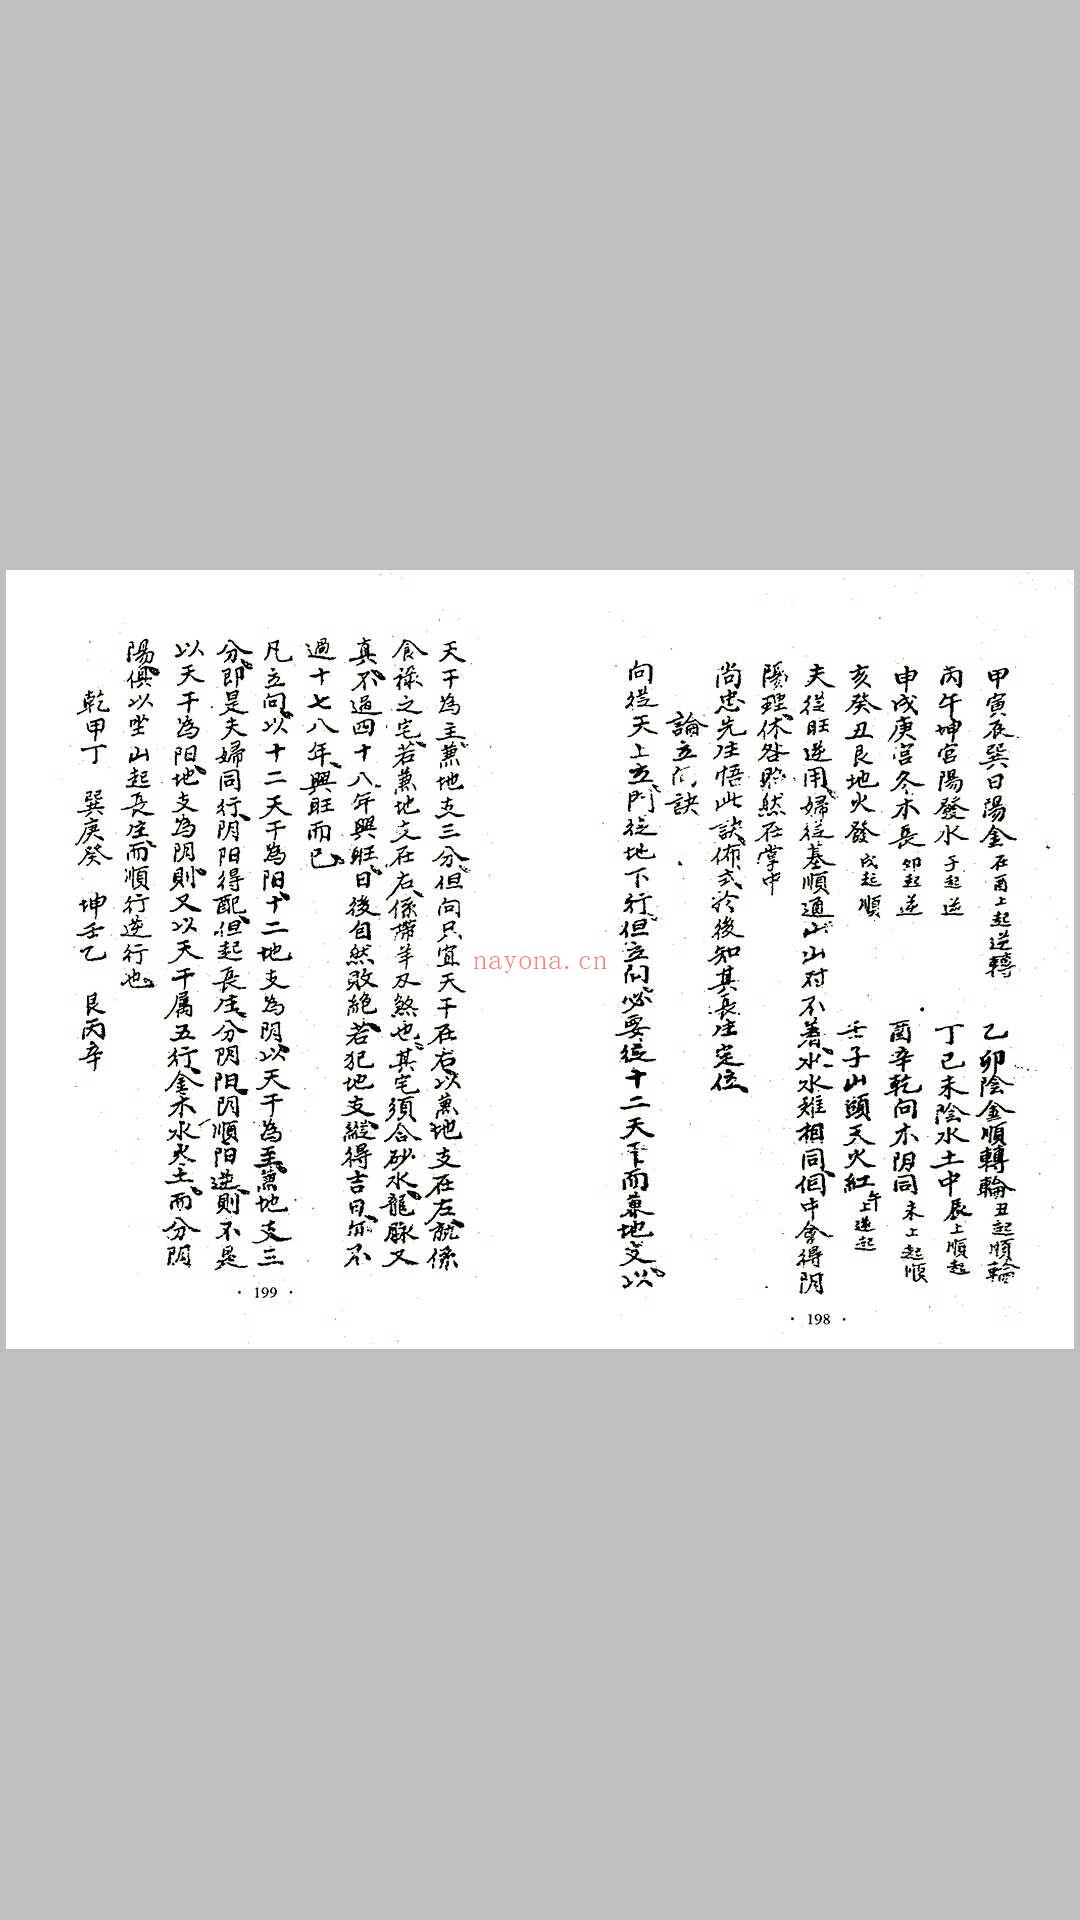 甲寅辰巽日陽金在酉上起逆轉 乙卯陰金順轉輪丑起順輪
丙午坤宮陽發水子起逆 丁巳未陰水土中辰上順起
申戌庚宮冬木長卯起逆 酉辛乾向木阴同未上起順
亥癸丑艮地火發戌起順 壬子山頭天火紅午上逆起
夫從旺逆用婦從墓順通山山对不著水水难相同個中會得阴
陽理休咎昭然在掌中
尚忠先生悟此訣佈式於後知其長生定位
論立向訣
向從天上立門從地下行但立向必要從十二天干而兼地支以
· 198 ·
天干為主兼地支三分但向只宜天干在右以兼地支在左就係
食祿之宅若兼地支在右係帶羊刃煞也其宅須合砂水龍脉又
真不過四十八年興旺日後自然敗絕若犯地支縱得吉日亦不
過十七八年興旺而已
凡立向以十二天干為阳十二地支為阴以天干為主兼地支三
分即是夫婦同行阴阳得配但起長生分阴阳阴順阳逆則不是
以天干為阳地支為阴則又以天干属五行金木水火土而分阴
陽俱以坐山起長生而順行逆行也
乾甲丁 巽庚癸 坤壬乙 艮丙辛
· 199 ·
nayona.cn